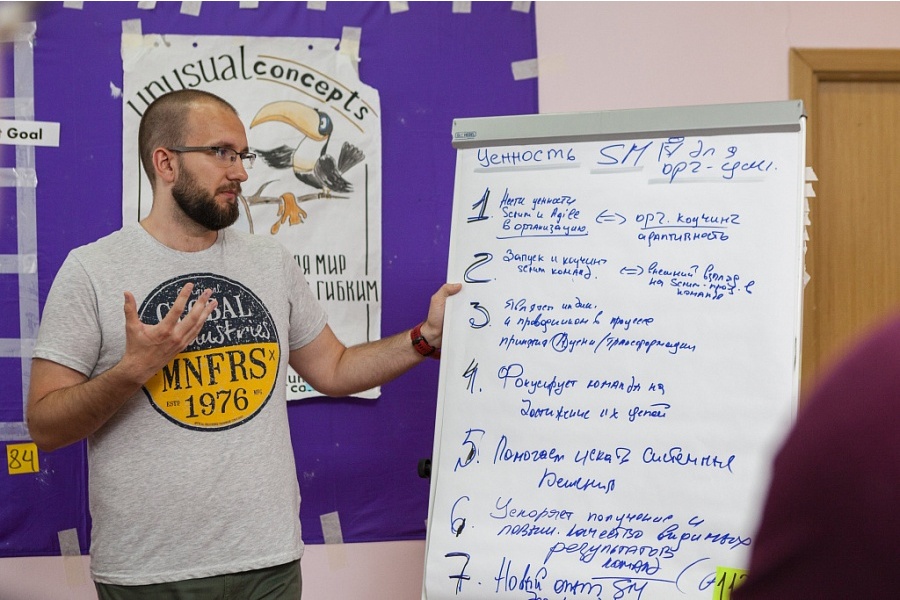 t Goal
unusual concepts
Я МИР
ГИБКИМ
GLOBAL
Industries
MNFRS
ESTD 1976 MFG
84
Ценность SM для
орг-ции.
1. Нести ценности
Scrum и Agile
в организацию
<=> орг. коучинг
адаптивность
2. Запуск и коучинг
scrum команд.
<=> внешний взгляд
на Scrum в
команде
3. Является
и проводником в процессе
принятия /трансформации
4. Фокусирует команды на
достижение их целей
5. Помогает искать системные
решения
6. Ускоряет получение и
качество
результатов
команд
7. Новый опыт SM